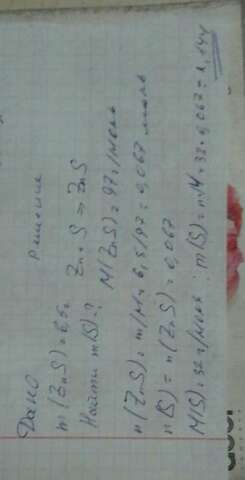 Дано
Решение
m(ZnS)=6,5г
Zn+S=ZnS
Найти m(S)-?
M(ZnS)=97г/моль
n(ZnS)=m/M=6,5/97=0,067 моль
n(S)=n(ZnS)=0,067
M(S)=32г/моль; m(S)=n·M=32×0,067=2,144